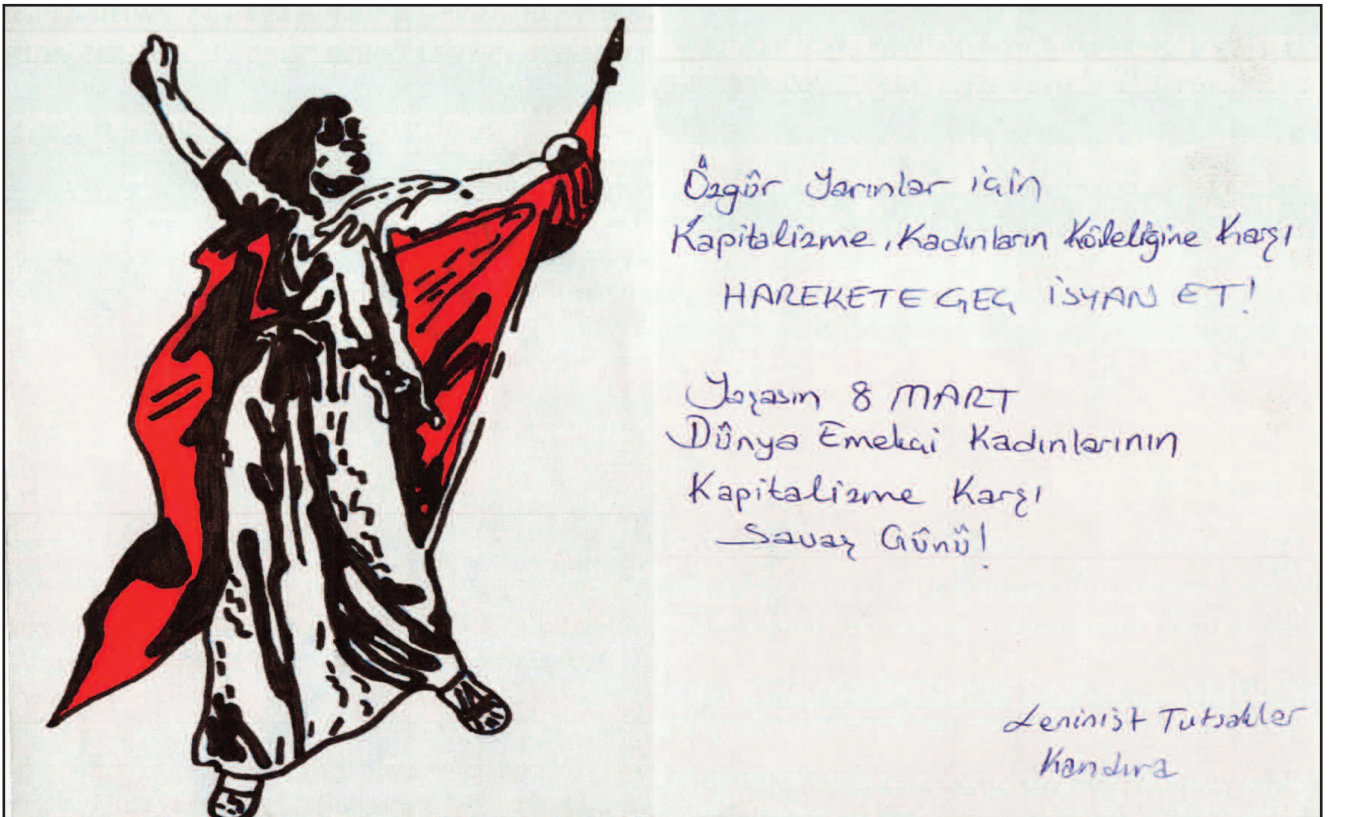 Özgür Yarınlar için
Kapitalizme, Kadınların Köleliğine Karşı
HAREKETE GEÇ İSYAN ET!
Yaşasın 8 MART
Dünya Emekçi Kadınlarının
Kapitalizme Karşı
Savaş Günü!
Leninist Tutsaklar
Kandıra